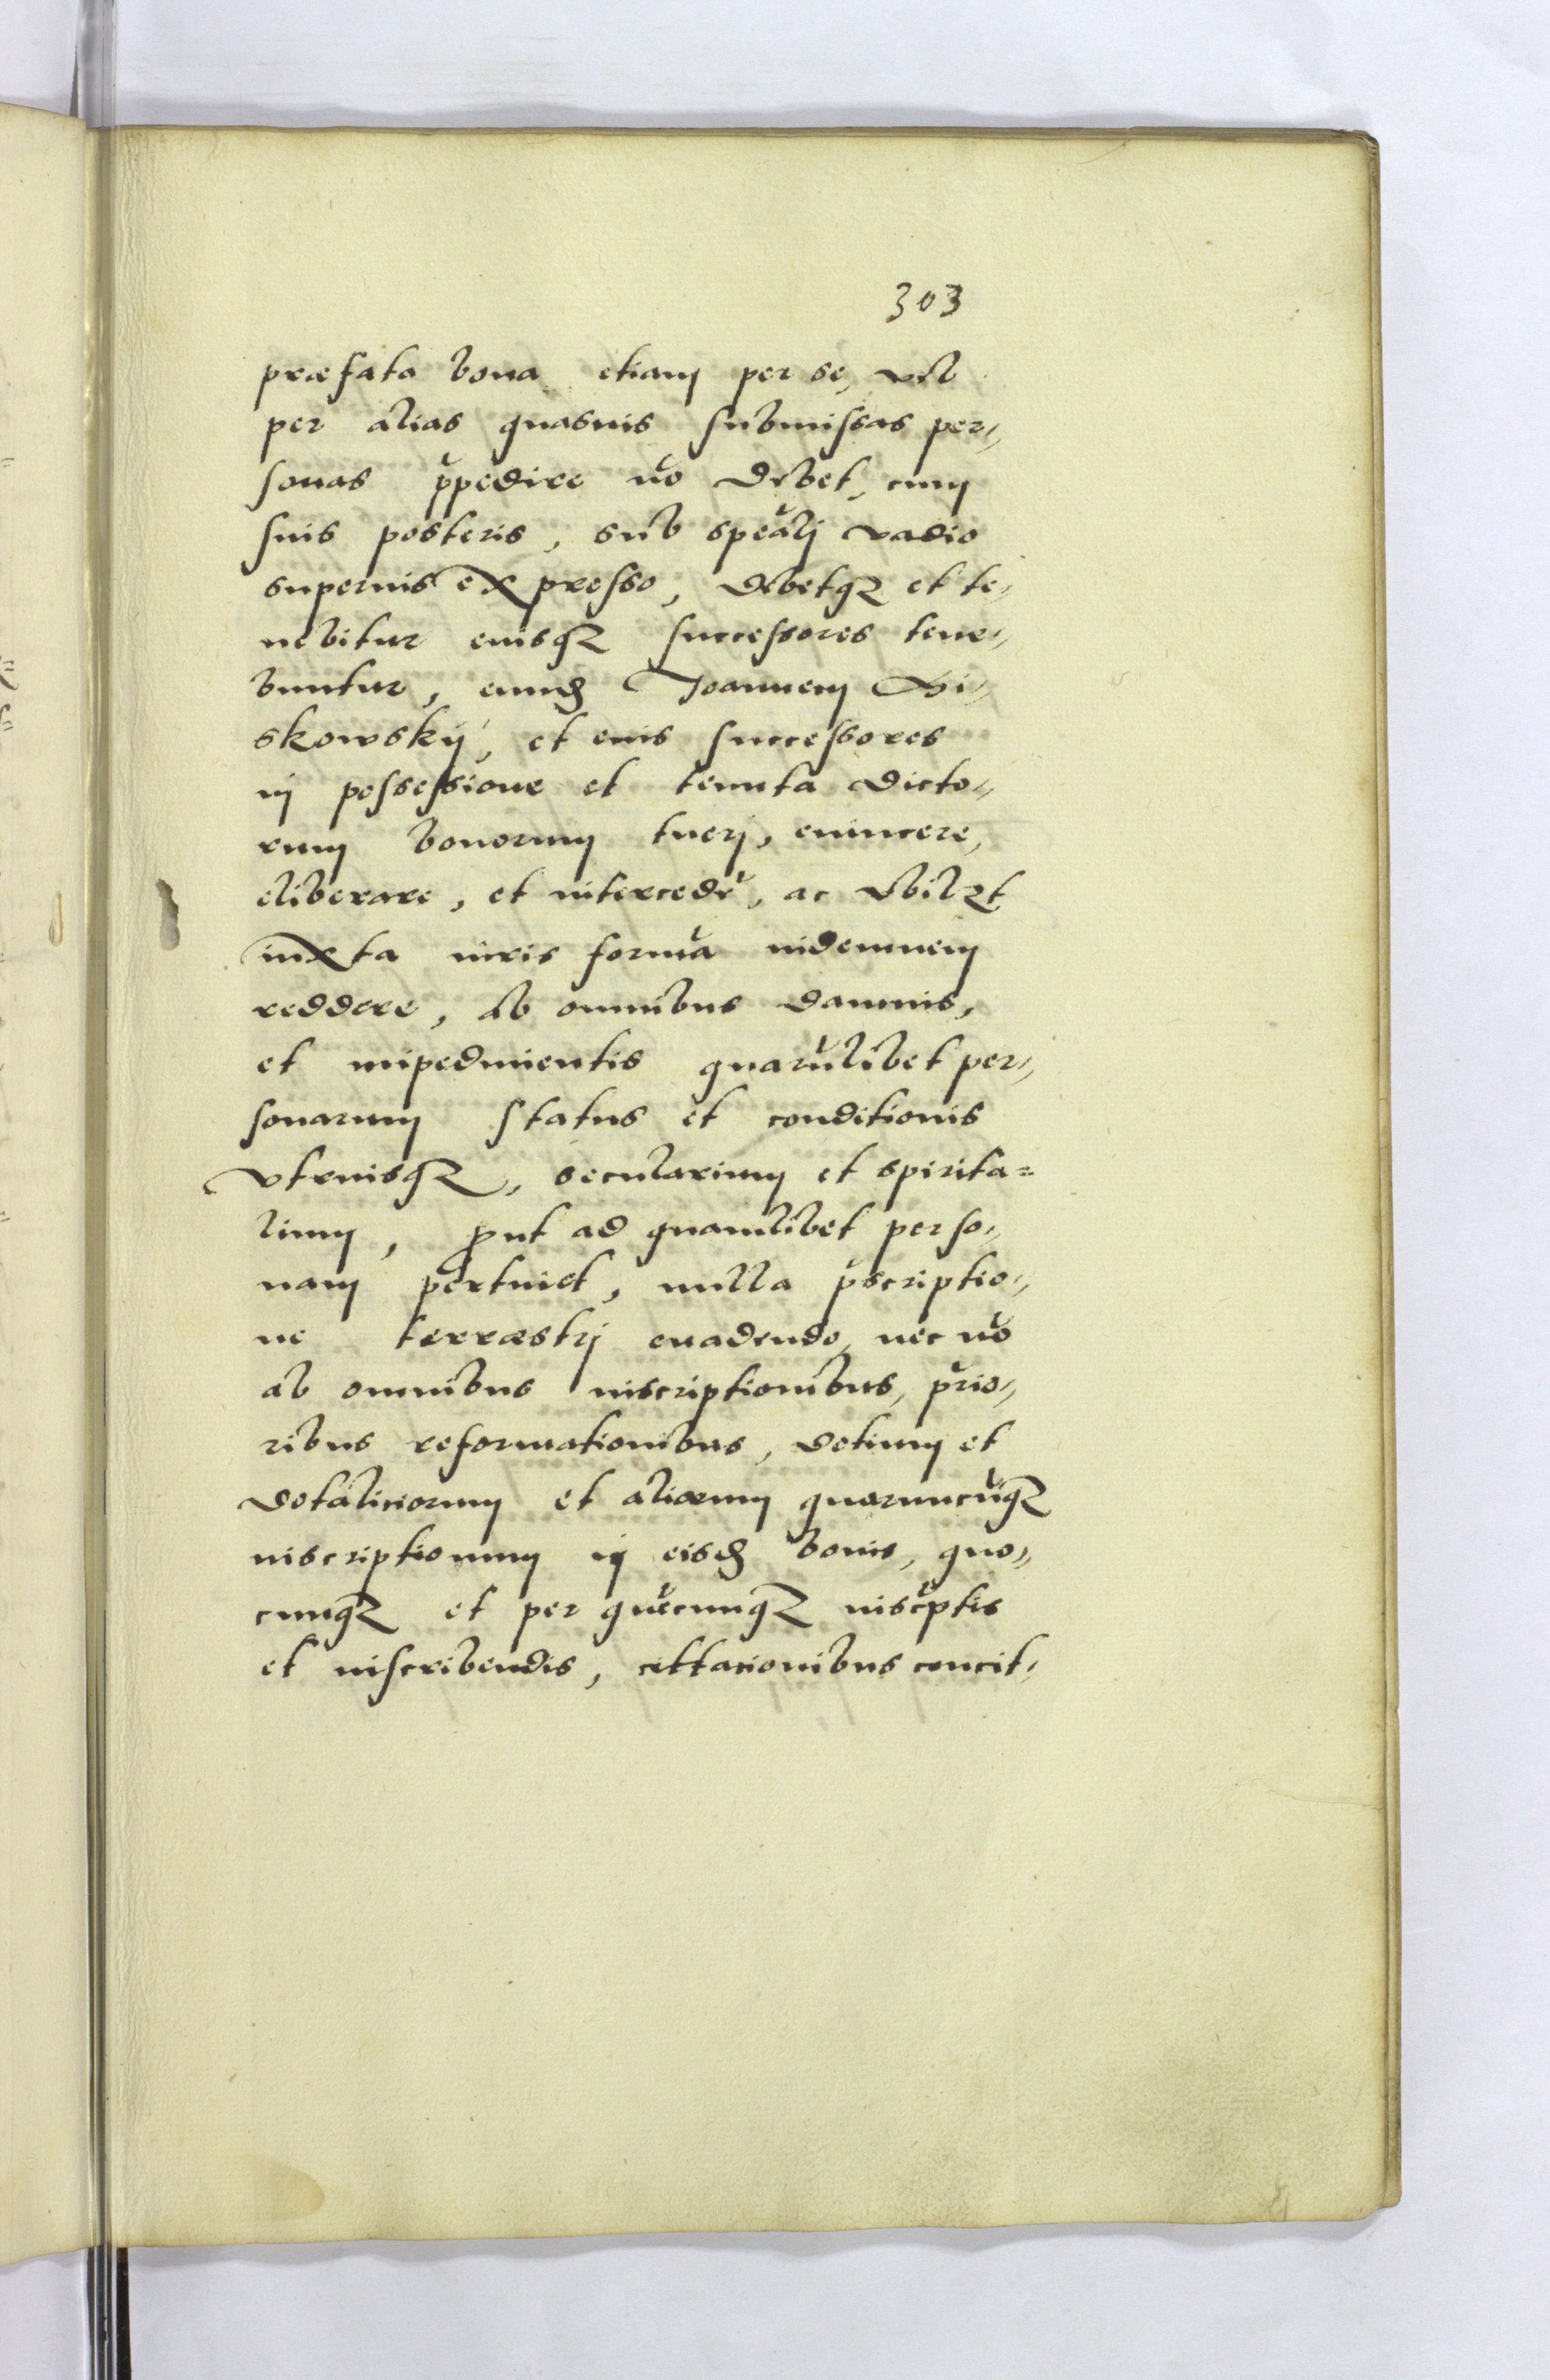 303
præfata bona etiam per se, vel
per alias quasuis submissas per,,
sonas p̄pedire nō debet, cum
suis posteris, sub speālj vadio
superius expresso, debetqȝ et te,,
nebitur eiusqȝ successores tene,,
buntur, eund̄ Joannem Gi,,
skowskij, et eius successores
in possessione et tenuta dicto,,
rum bonorum tuerj, euincere,
eliberare, et intercedē, ac
iuxta iuris formā indemnem
reddere, ab omnibus damnis,
et impedimentis quarūlibet per,,
sonarum status et conditionis
vtriusqȝ, secularium et spirita=
lium, ꝓut ad quamlibet perso,,
nam pertinet, nulla p̄scriptio,,
ne terræstrj euadendo, nec nō
ab omnibus inscriptionibus, p̄rio,,
ribus reformationibus, dotium et
dotaliciorum et aliarum quarumcūqȝ
inscriptionum in eisd̄ bonis, quo,,
cumqȝ et per quēcumqȝ inscr̄ptis
et inscribendis, cittacionibus concit,,